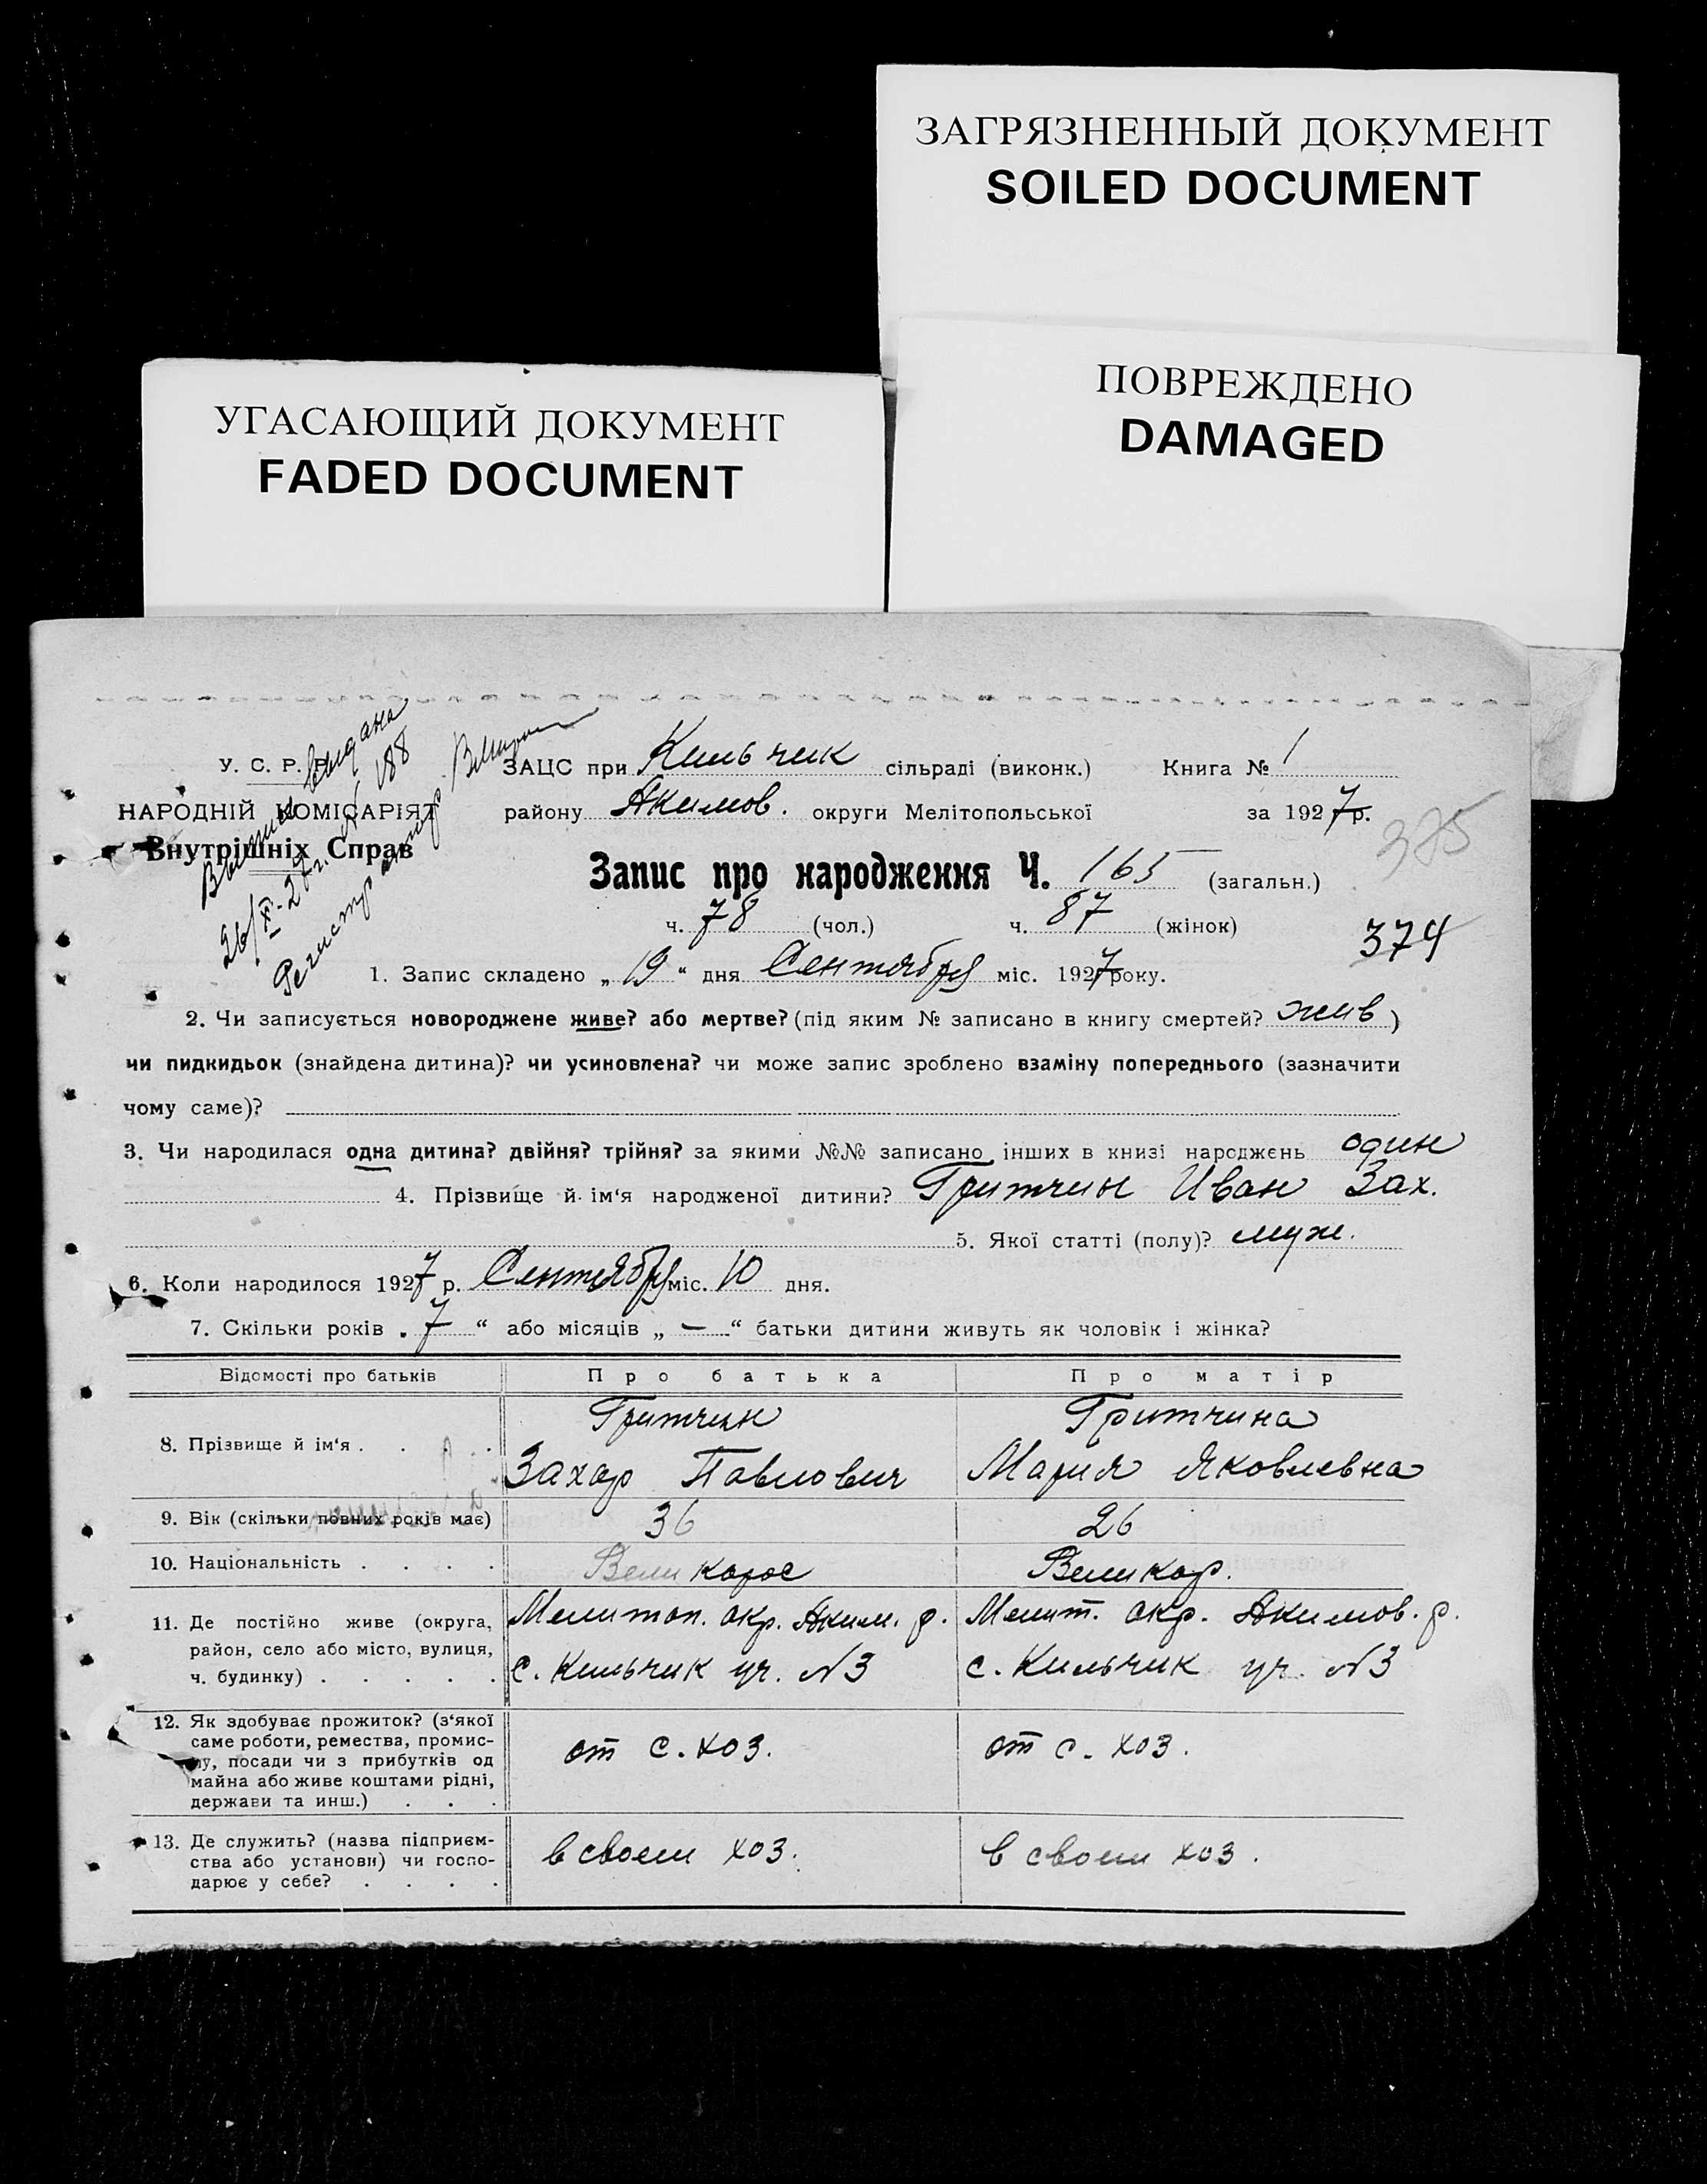 ЗАГРЯЗНЕННЫЙ ДОКУМЕНТ
SOILED DOCUMENT
ПОВРЕЖДЕНО
DAMAGED
УГАСАЮЩИЙ ДОКУМЕНТ
FADED DOCUMENT
У. С. Р. Р.
НАРОДНІЙ КОМІСАРІЯТ
Внутрішніх Справ
Выпись выдана
26/X-27г. № 188
Регистратор
ЗАЦС при Кильчик сільраді (виконк.) Книга № 1
району Акимов. округи Мелітопольської за 1927 р.
375
Запис про народження Ч. 165 (загальн.)
ч. 78 (чол.) ч. 87 (жінок)
374
1. Запис складено „19“ дня Сентября міс. 1927 року.
2. Чи записується новороджене живе? або мертве? (під яким № записано в книгу смертей? жив )
чи пидкидьок (знайдена дитина)? чи усиновлена? чи може запис зроблено взаміну попереднього (зазначити
чому саме)?
3. Чи народилася одна дитина? двійня? трійня? за якими №№ записано інших в книзі народжень один
4. Прізвище й ім‘я народженої дитини? Гритчин Иван Зах.
5. Якої статті (полу)? муж.
6. Коли народилося 1927 р. Сентября міс. 10 дня.
7. Скільки років „7“ або місяців „—“ батьки дитини живуть як чоловік і жінка?
Відомості про батьків Про батька Про матір
8. Прізвище й ім‘я . . . .
Гритчин
Захар Павлович
Гритчина
Мария Яковлевна
9. Вік (скільки повних років має) 36 26
10. Національність . . . . Великорос Великор.
11. Де постійно живе (округа,
район, село або місто, вулиця,
ч. будинку) . . . . .
Мелитоп. окр. Аким. р.
с. Кильчик уч. №3
Мелит. окр. Акимов. р.
с. Кильчик уч. №3
12. Як здобуває прожиток? (з‘якої
саме роботи, ремества, промис-
лу, посади чи з прибутків од
майна або живе коштами рідні,
держави та инш.) . . .
от с. хоз.
от с. хоз.
13. Де служить? (назва підприєм-
ства або установи) чи госпо-
дарює у себе? . . . .
в своем хоз.
в своем хоз.